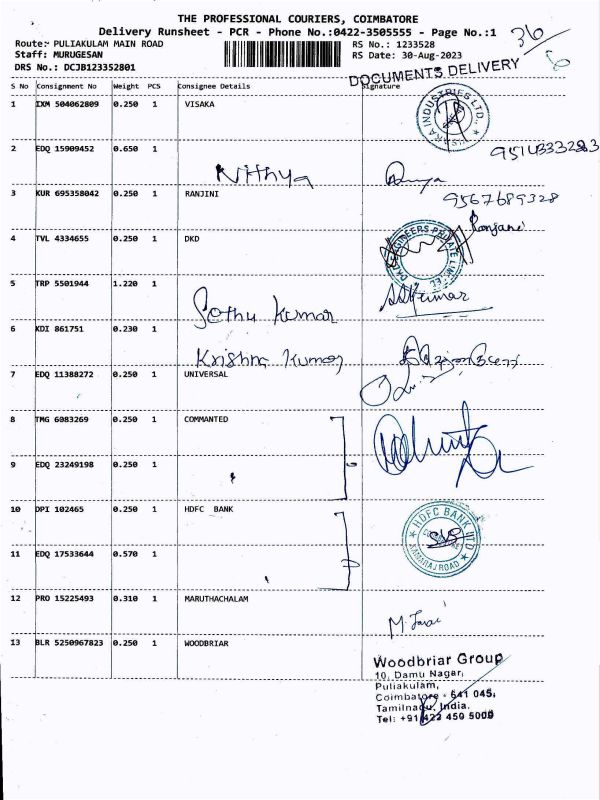 THE PROFESSIONAL COURIERS, COIMBATORE
Delivery Runsheet - PCR - Phone No.:0422-3505555 - Page No.:1
36
Route: PULIAKULAM MAIN ROAD
RS No.: 1233528
Staff: MURUGESAN
RS Date: 30-Aug-2023
DRS No.: DCJB123352801
DOCUMENTS DELIVERY
S No Consignment No Weight PCS Consignee Details Signature
1 IXM 504062809 0.250 1 VISAKA
INDUSTRIES LTD.
2 EDQ 15909452 0.650 1
Nithya
9514333283
3 KUR 695358042 0.250 1 RANJINI
9567689328
Ranjani
4 TVL 4334655 0.250 1 DKD
ENGINEERS PRIVATE LIMITED
5 TRP 5501944 1.220 1
Sethu Kumar
6 KDI 861751 0.230 1
Krishna Kumar
7 EDQ 11388272 0.250 1 UNIVERSAL
8 TMG 6083269 0.250 1 COMMANTED
9 EDQ 23249198 0.250 1
10 DPI 102465 0.250 1 HDFC BANK
HDFC BANK LTD
KAMARAJ ROAD
11 EDQ 17533644 0.570 1
12 PRO 15225493 0.310 1 MARUTHACHALAM
13 BLR 5250967823 0.250 1 WOODBRIAR
Woodbriar Group
10, Damu Nagar,
Puliakulam,
Coimbatore - 641 045,
Tamilnadu, India.
Tel: +91 422 450 5000